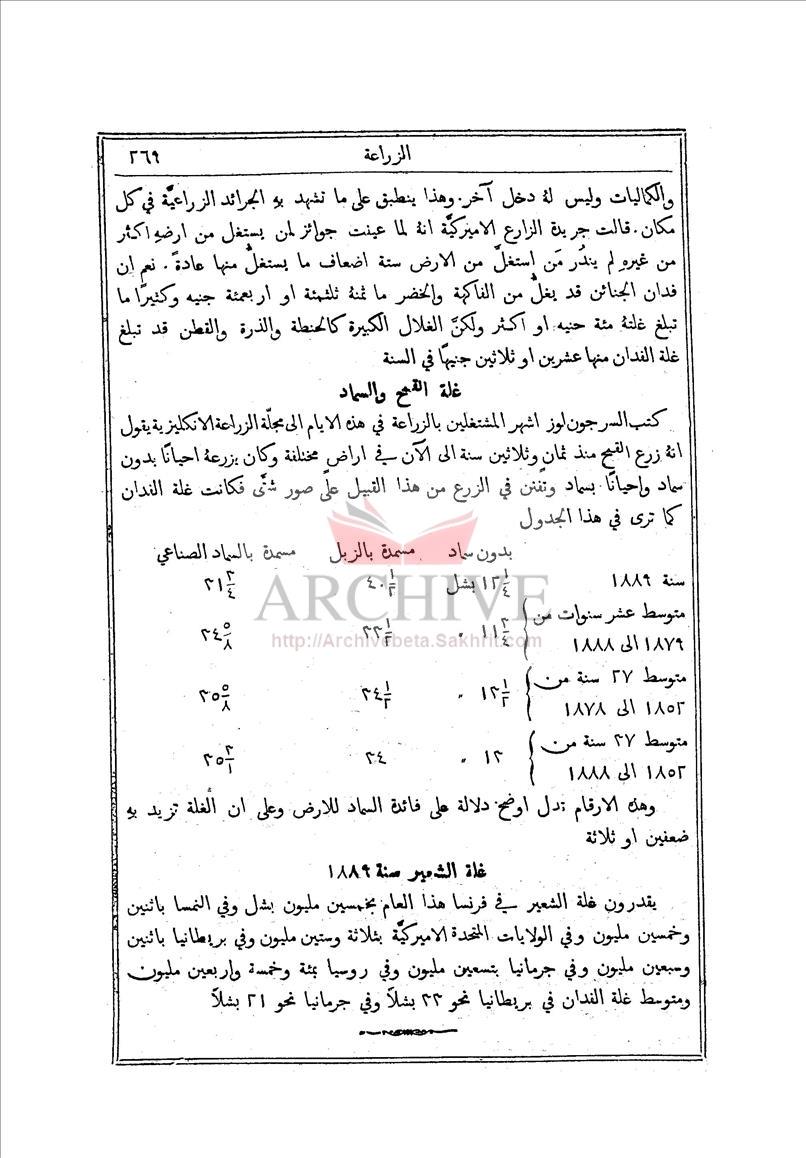 الزراعة
٢٦٩
والكماليات وليس لهُ دخل آخر. وهذا ينطبق على ما تشهد بهِ الجرائد الزراعيَّة في كل
مكان. قالت جريدة الزارع الاميركيَّة انهُ لما عينت جوائز لمن يستغل من ارضهِ اكثر
من غيرهِ لم يندُر مَن استغلَّ من الارض ستة اضعاف ما يستغلُّ منها عادةً. نعم ان
فدان الجنائن قد يغلُّ من الفاكهة والخضر ما ثمنهُ ثلثمئة او اربعمئة جنيه وكثيرًا ما
تبلغ غلتهُ مئة جنيه او اكثر ولكنَّ الغلال الكبيرة كالحنطة والذرة والقطن قد تبلغ
غلة الفدان منها عشرين او ثلاثين جنيهًا في السنة
غلة القمح والسماد
كتب السر جون لوز اشهر المشتغلين بالزراعة في هذه الايام الى مجلَّة الزراعة الانكليزية يقول
انهُ زرع القمح منذ ثمانٍ وثلاثين سنة الى الآن في اراضٍ مختلفة وكان يزرعهُ احيانًا بدون
سماد واحيانًا بسماد وتفنن في الزرع من هذا القبيل على صور شتَّى فكانت غلة الفدان
كما ترى في هذا الجدول
بدون سماد مسمدة بالزبل مسمدة بالسماد الصناعي
سنة ١٨٨٩ ١٢ ١/٤ بشل ٤٠ ١/٢ ٣١ ٣/٤
متوسط عشر سنوات من
١٨٧٩ الى ١٨٨٨ ١١ ٣/٤ ٣٤ ٥/٨
متوسط ٢٧ سنة من
١٨٥٢ الى ١٨٧٨ ١٣ ١/٢ ٣٤ ١/٢ ٣٥ ٥/٨
متوسط ٣٧ سنة من
١٨٥٢ الى ١٨٨٨ ١٣ ٣٤
وهذه الارقام تدل اوضح دلالة على فائدة السماد للارض وعلى ان الغلة تزيد بهِ
ضعفين او ثلاثة
غلة الشعير سنة ١٨٨٩
يقدرون غلة الشعير في فرنسا هذا العام بخمسين مليون بشل وفي النمسا باثنين
وخمسين مليون وفي الولايات المتحدة الاميركيَّة بثلاثة وستين مليون وفي بريطانيا باثنين
وسبعين مليون وفي جرمانيا بتسعين مليون وفي روسيا بمئة وخمسة واربعين مليون
ومتوسط غلة الفدان في بريطانيا نحو ٣٣ بشلًا وفي جرمانيا نحو ٢١ بشلًا
ARCHIVE
http://Archivebeta.Sakhrit.com